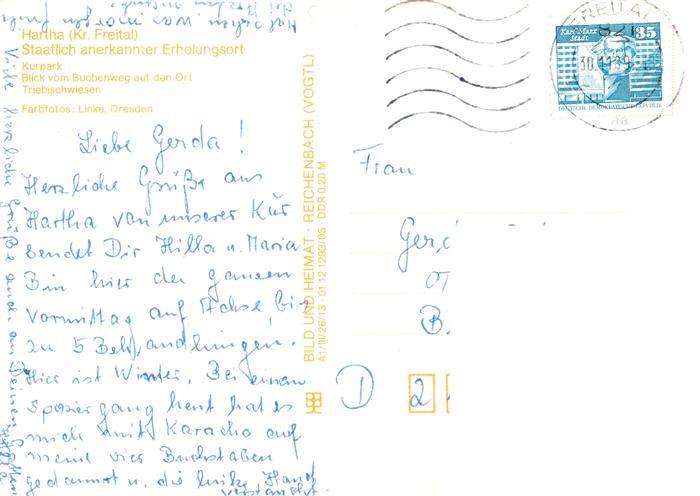 Hartha (Kr. Freital)
Staatlich anerkannter Erholungsort
Kurpark
Blick vom Buchenweg auf den Ort
Triebischwiesen
Farbfotos: Linke, Dresden
Liebe Gerda!
Herzliche Grüße aus
Hartha von unserer Kur
sendet Dir Hilla u. Maria
Bin hier den ganzen
Vormittag auf Achse bis
zu 5 Behandlungen!
Hier ist Winter. Bei einem
Spaziergang heut hat es
mich mit Karacho auf
meine vier Buchstaben
gedonnert u. die linke Hand
verstaucht.
Viele herzliche Grüße auch an Deinen
BILD UND HEIMAT · REICHENBACH (VOGTL)
A1/III/26/13 01 12 1293/05 DDR 0,20 M
FREITAL
821
30.11.
Karl-Marx-
Stadt
35
DEUTSCHE DEMOKRATISCHE REPUBLIK
Frau
Ger
B.
D 2